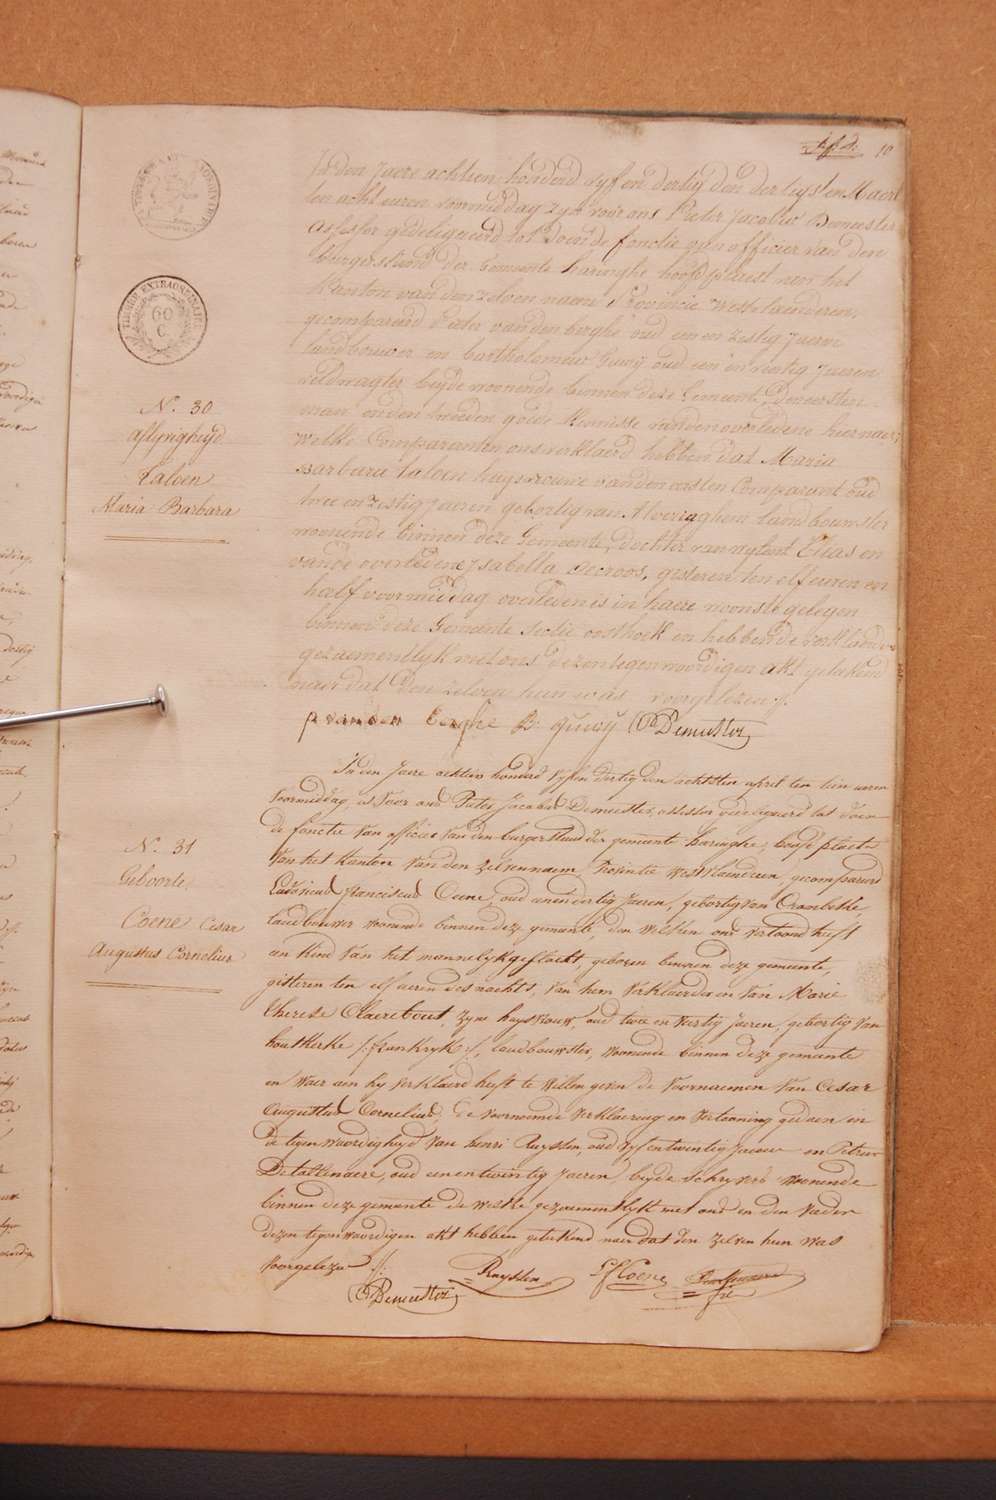 10
TIMBRE EXTRAORDINAIRE
60
C.
In den Jaere achtien honderd vyf en dertig den dertigsten Maert
ten acht euren voormiddag zyn voor ons Pieter Jacobus Demeester
assessor gedeligueerd tot doen de fonctie van officier van den
burgerstand der Gemeente haringhe hoofdplaets van het
Kanton van den zelven naem Provincie Westvlaenderen,
gecompareerd Pieter vanden berghe oud een en zestig Jaeren
landbouwer en bartholomeus Quaÿ oud een en veertig Jaeren
veldwagter beyde woonende binnen deze Gemeente, Den eersten
man en den tweeden goede Kennisse van den overledene hier naer;
welke Comparanten ons verklaerd hebben dat Maria
Barbara Taloen huysvrouwe van den eersten Comparant oud
twee en zestig Jaeren gebortig van Alveringhem landbouwster
woonende binnen deze Gemeente, dochter van wylent Elias en
van de overledene Isabella Decroos, gisteren ten elf euren en
half voormiddag overleden is in haere woonste gelegen
binnen deze Gemeente sectie oosthoek en hebben de verklaerders
gezaementlyk met ons dezen tegenwoordigen akt geteekend
naer dat den zelven hun was voorgelezen ./.
p vanden berghe B. Quaÿ Demeester
N. 30
aflyvigheyd
Taloen
Maria Barbara
In den Jaere achtien honderd vyf en dertig den achtsten april ten tien uren
voormiddag, is voor ons Pieter Jacobus Demeester, assessor gedeligueerd tot doen
de fonctie van officier van den burgerstand der gemeente haringhe, hoofd plaets
van het kanton van den zelven naem, Provintie Westvlaenderen, gecompareerd
Ludovicus franciscus Coene, oud eenendertig jaeren, gebortig van Crombeke,
landbouwer woonende binnen deze gemeente, den welken ons vertoond heeft
een kind van het mannelyk geslacht, geboren binnen deze gemeente,
gisteren ten elf ueren des nachts, van hem verklaerder en van Marie
Therese Claerebout, zyne huysvrouw, oud twee en veertig jaeren, gebortig van
houtkerke /: frankryk :/, landbouwster, woonende binnen deze gemeente
en waer aen hy verklaerd heeft te willen geven de voornaemen van Cesar
Augustus Cornelius, de voornoemde verklaering en vertooning gedaen in
de tegenwoordigheyd van henri Ruyssen, oud vyfentwintig jaeren en Petrus
, oud eenentwintig Jaeren, beyde schryvers woonende
binnen deze gemeente de welke gezaementlyk met ons en den vader
dezen tegenwoordigen akt hebben geteekend naer dat den zelven hun was
voorgelezen ./.
N. 31
Geboorte
Coene Cesar
Augustus Cornelius
Demeester Ruyssen Coene